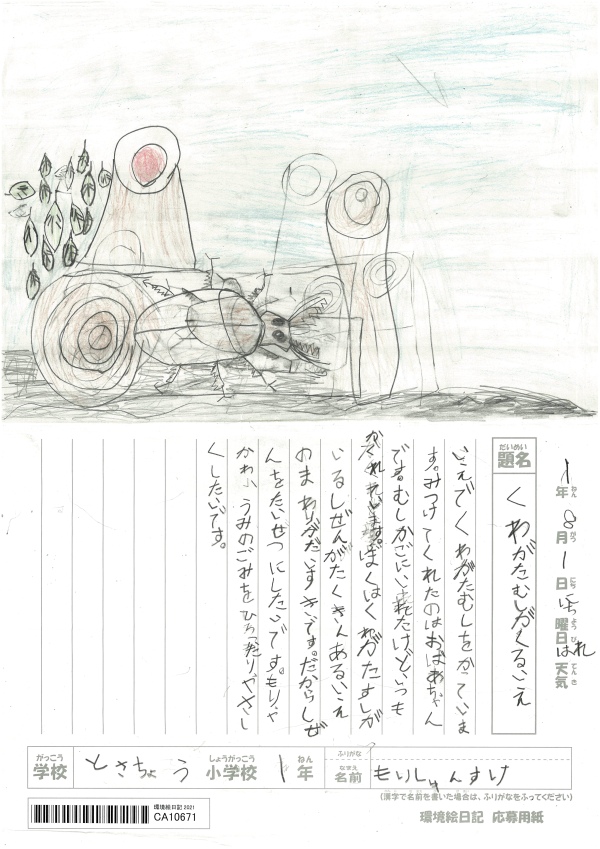 1年 8月 1日 にち曜日 はれ 天気
ねん がつ にち ようび てんき
だいめい
題名 くわがたむしがくるいえ
いえでくわがたむしをかっていま
す。みつけてくれたのはおばあちゃん
です。むしかごにいれたけどいつも
かくれています。ぼくはくわがたむしが
いるしぜんがたくさんあるいえ
のまわりがだいすきです。だからしぜ
んをたいせつにしたいです。もりや
かわ、うみのごみをひろったりやさし
くしたいです。
がっこう しょうがっこう ねん ふりがな
学校 とさちょう 小学校 1年 なまえ 名前 もりしゅんすけ
(漢字で名前を書いた場合は、ふりがなをふってください)
環境絵日記 2021
CA10671
環境絵日記 応募用紙